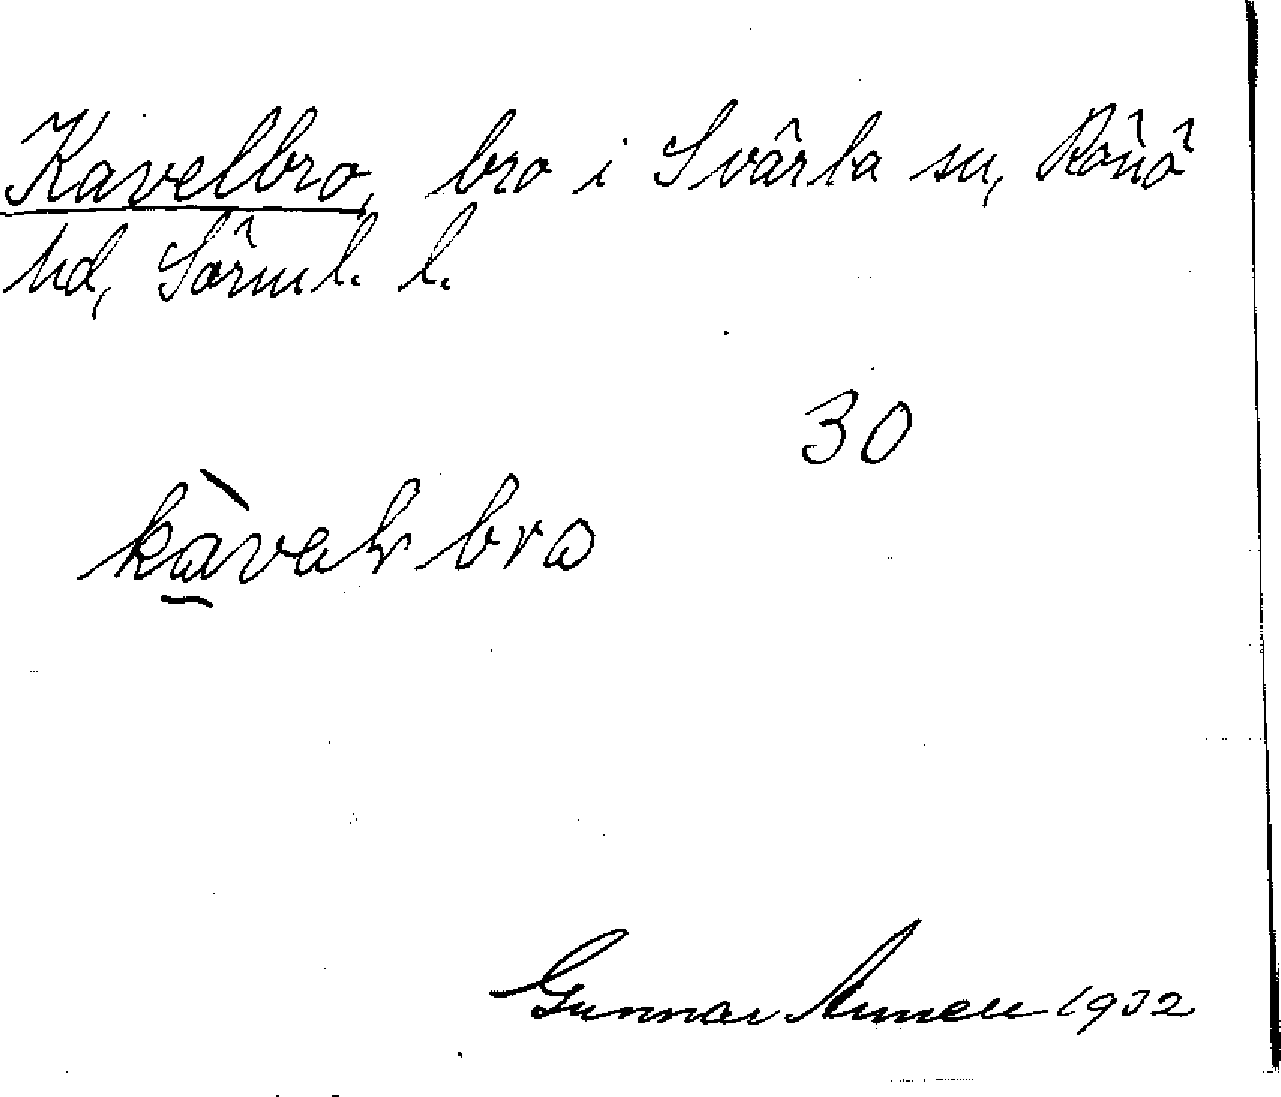 Kavelbro, bro i Svärta sn, Rönö
hd, Sörml. l.
30
kàvalv bro
Gunnar Annell 1932